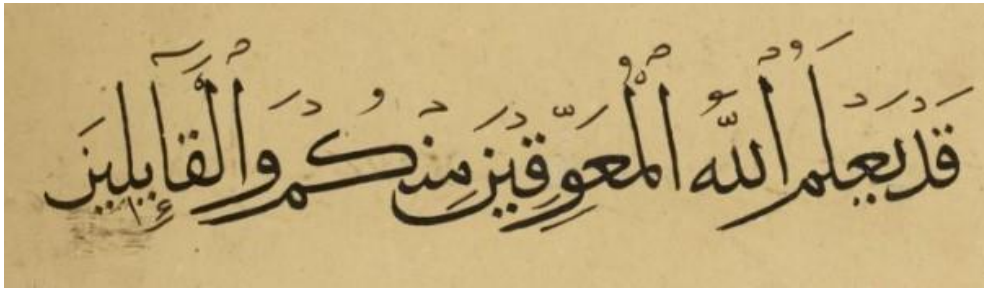 قَدْ يَعْلَمُ ٱللَّهُ ٱلْمُعَوِّقِينَ مِنكُمْ وَٱلْقَآئِلِينَ